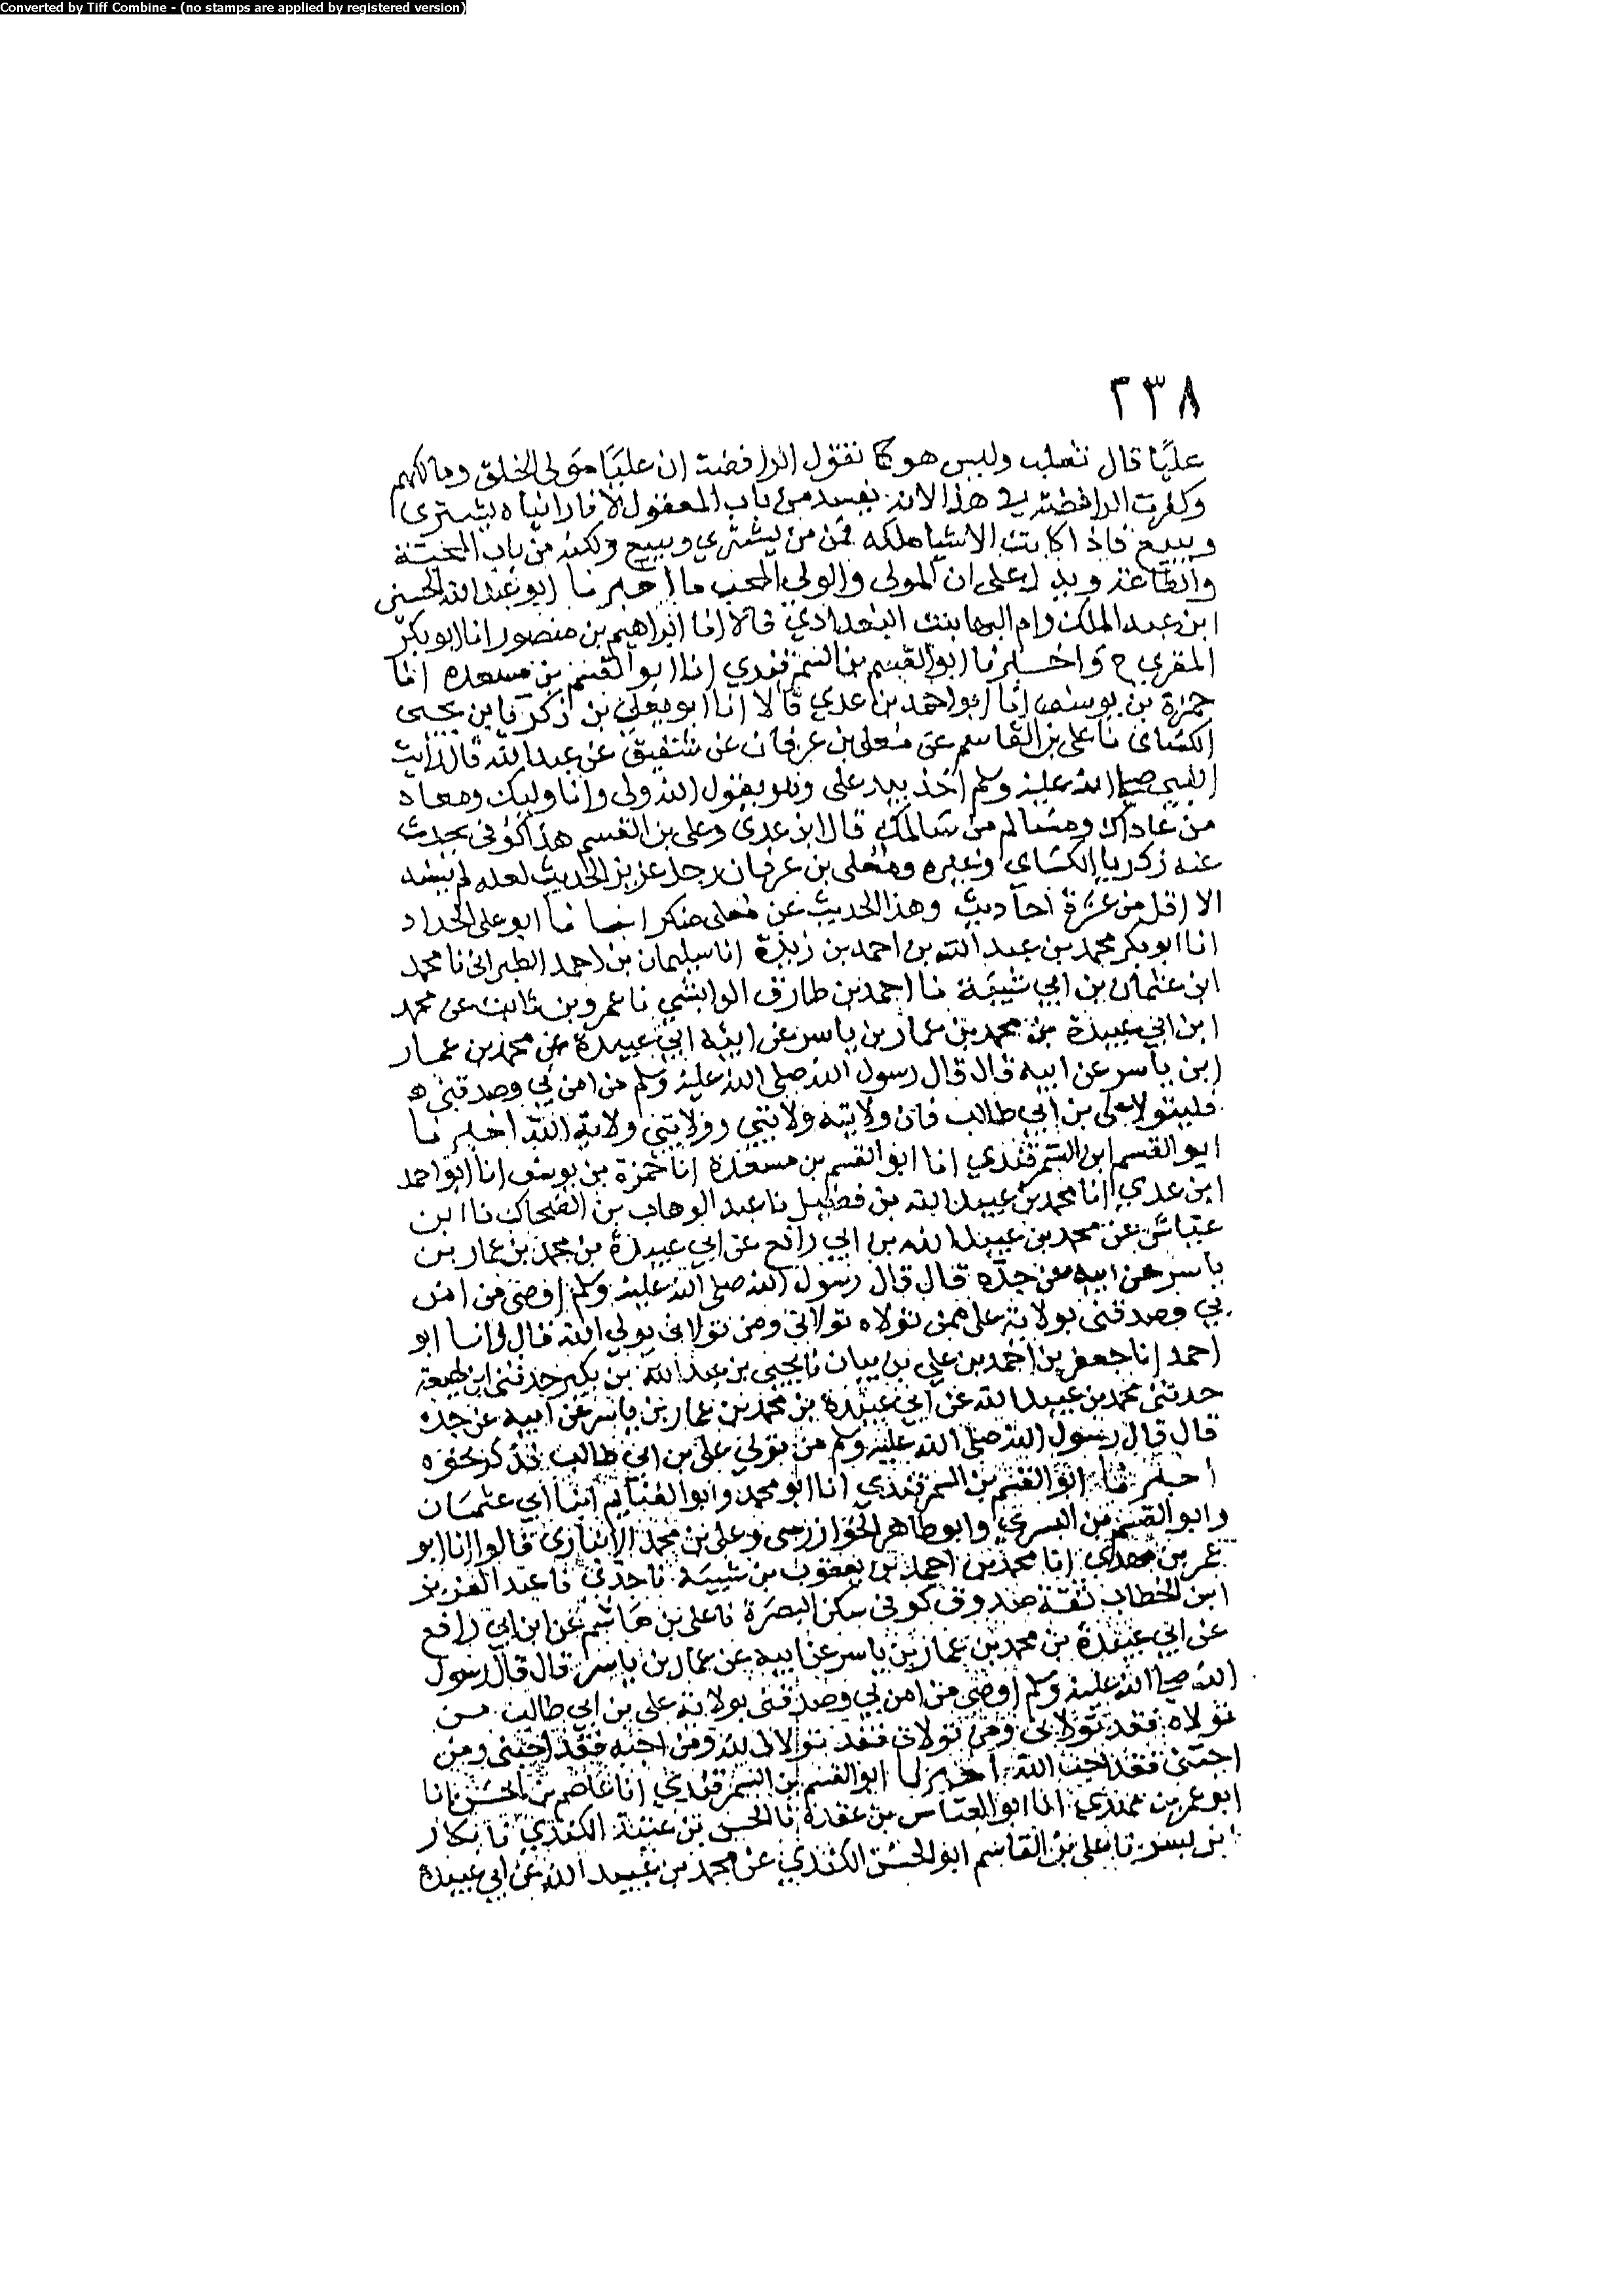 Converted by Tiff Combine - (no stamps are applied by registered version)
٢٣٨
عليًا قال ثعلب وليس هو كما تقول الرافضة ان عليًا مولى الخلق ومالكهم
وكفرت الرافضة في هذا لانه يفسد من باب المعقول لانا رايناه يشترى
ويبيع فاذا كانت الاشيا ملكه فمن من يشتري ويبيع ولكنه من باب المحبة
والطاعة ويدل على ان المولى والولي المحب ما اخبرنا ابو عبد الله الحسين
ابن عبد الملك وام البها بنت البغدادي قالا انا ابراهيم بن منصور انا ابو بكر
المقري ح واخبرنا ابو القسم بن السمرقندي انا ابو القسم بن مسعدة انا
حمزة بن يوسف انا ابو احمد بن عدي قالا انا ابو يعلى بن زكريا بن يحيى
الكسائ نا على بن القاسم عن معلى بن عرفان عن شقيق عن عبد الله قال رايت
النبي صلى الله عليه وسلم اخذ بيد على وهو يقول الله ولى وانا وليك ومعاد
من عاداك ومسالم من سالمك قال ابن عدى وعلى بن القسم هذا كوفى يحدث
عنه زكريا الكسائ وغيره ومعلى بن عرفان رجل عزيز الحديث لعله لم يسند
الا اقل من عشرة احاديث وهذا الحديث عن معلى منكر انبانا ابو على الحداد
انا ابو بكر محمد بن عبد الله بن احمد بن زيدة انا سليمان بن احمد الطبرانى نا محمد
ابن عثمان بن ابي شيبة نا احمد بن طارق الوابشي نا عمرو بن ثابت عن محمد
ابن ابي عبيدة بن محمد بن عمار بن ياسر عن ابيه ابي عبيدة عن محمد بن عمار
ابن ياسر عن ابيه قال قال رسول الله صلى الله عليه وسلم من امن بي وصدقني
فليتولا على بن ابي طالب فان ولايته ولايتي وولايتي ولاية الله اخبرنا
ابو القسم ابن السمرقندي انا ابو القسم بن مسعدة انا حمزة بن يوسف انا ابو احمد
ابن عدي انا محمد بن عبيد الله بن فضيل نا عبد الوهاب بن الضحاك نا ابن
عياش عن محمد بن عبيد الله بن ابي رافع عن ابي عبيدة بن محمد بن عمار بن
ياسر عن ابيه عن جده قال قال رسول الله صلى الله عليه وسلم اوصى من امن
بي وصدقنى بولاية على فمن تولاه تولانى ومن تولانى تولى الله قال وانا ابو
احمد انا جعفر بن احمد بن علي بن بيان نا يحيى بن عبد الله بن بكير حدثنى ابن لهيعة
حدثنى محمد بن عبيد الله عن ابي عبيدة بن محمد بن عمار بن ياسر عن ابيه عن جده
قال قال رسول الله صلى الله عليه وسلم من تولى على بن ابي طالب فذكر نحوه
اخبرنا ابو القسم بن السمرقندي انا ابو محمد وابو الغنايم ابنا ابي عثمان
وابو القسم بن البسري وابو طاهر الخوارزمى وعلى بن محمد الانبارى قالوا انا ابو
عمر بن مهدي انا محمد بن احمد بن يعقوب بن شيبة نا جدي نا عبد العزيز
ابن الخطاب ثقة صدوق كوفى سكن البصرة نا على بن هاشم عن ابن ابي رافع
عن ابي عبيدة بن محمد بن عمار بن ياسر عن ابيه عن عمار بن ياسر قال قال رسول
الله صلى الله عليه وسلم اوصى من امن بي وصدقنى بولاية على بن ابي طالب من
تولاه فقد تولانى ومن تولانى فقد تولا الله ومن احبه فقد احبنى ومن
احبنى فقد احب الله اخبرنا ابو القسم بن السمرقندي انا عاصم بن الحسن انا
ابو عمر بن مهدي انا ابو العباس بن عقدة نا الحسن بن عتبة الكندي نا بكار
ابن بسر نا على بن القاسم ابو الحسن الكندي عن محمد بن عبيد الله عن ابي عبيدة